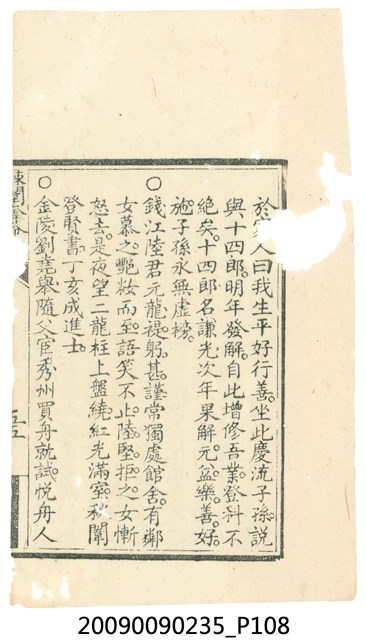 於 人曰我生平好行善坐此慶流子孫說
與十四郎明年發解自此增修吾業登科不
絕矣十四郎名謙光次年果解元益樂善好
施子孫永無虛榜
○錢江陸君元龍禔躬甚謹常獨處館舍有鄰
女慕之艷妝而至語笑不止陸堅拒之女慚
怒去是夜望二龍柱上盤繞紅光滿室秋闈
登賢書丁亥成進士
○金陵劉堯舉隨父宦秀州買舟就試悅舟人
20090090235_P108